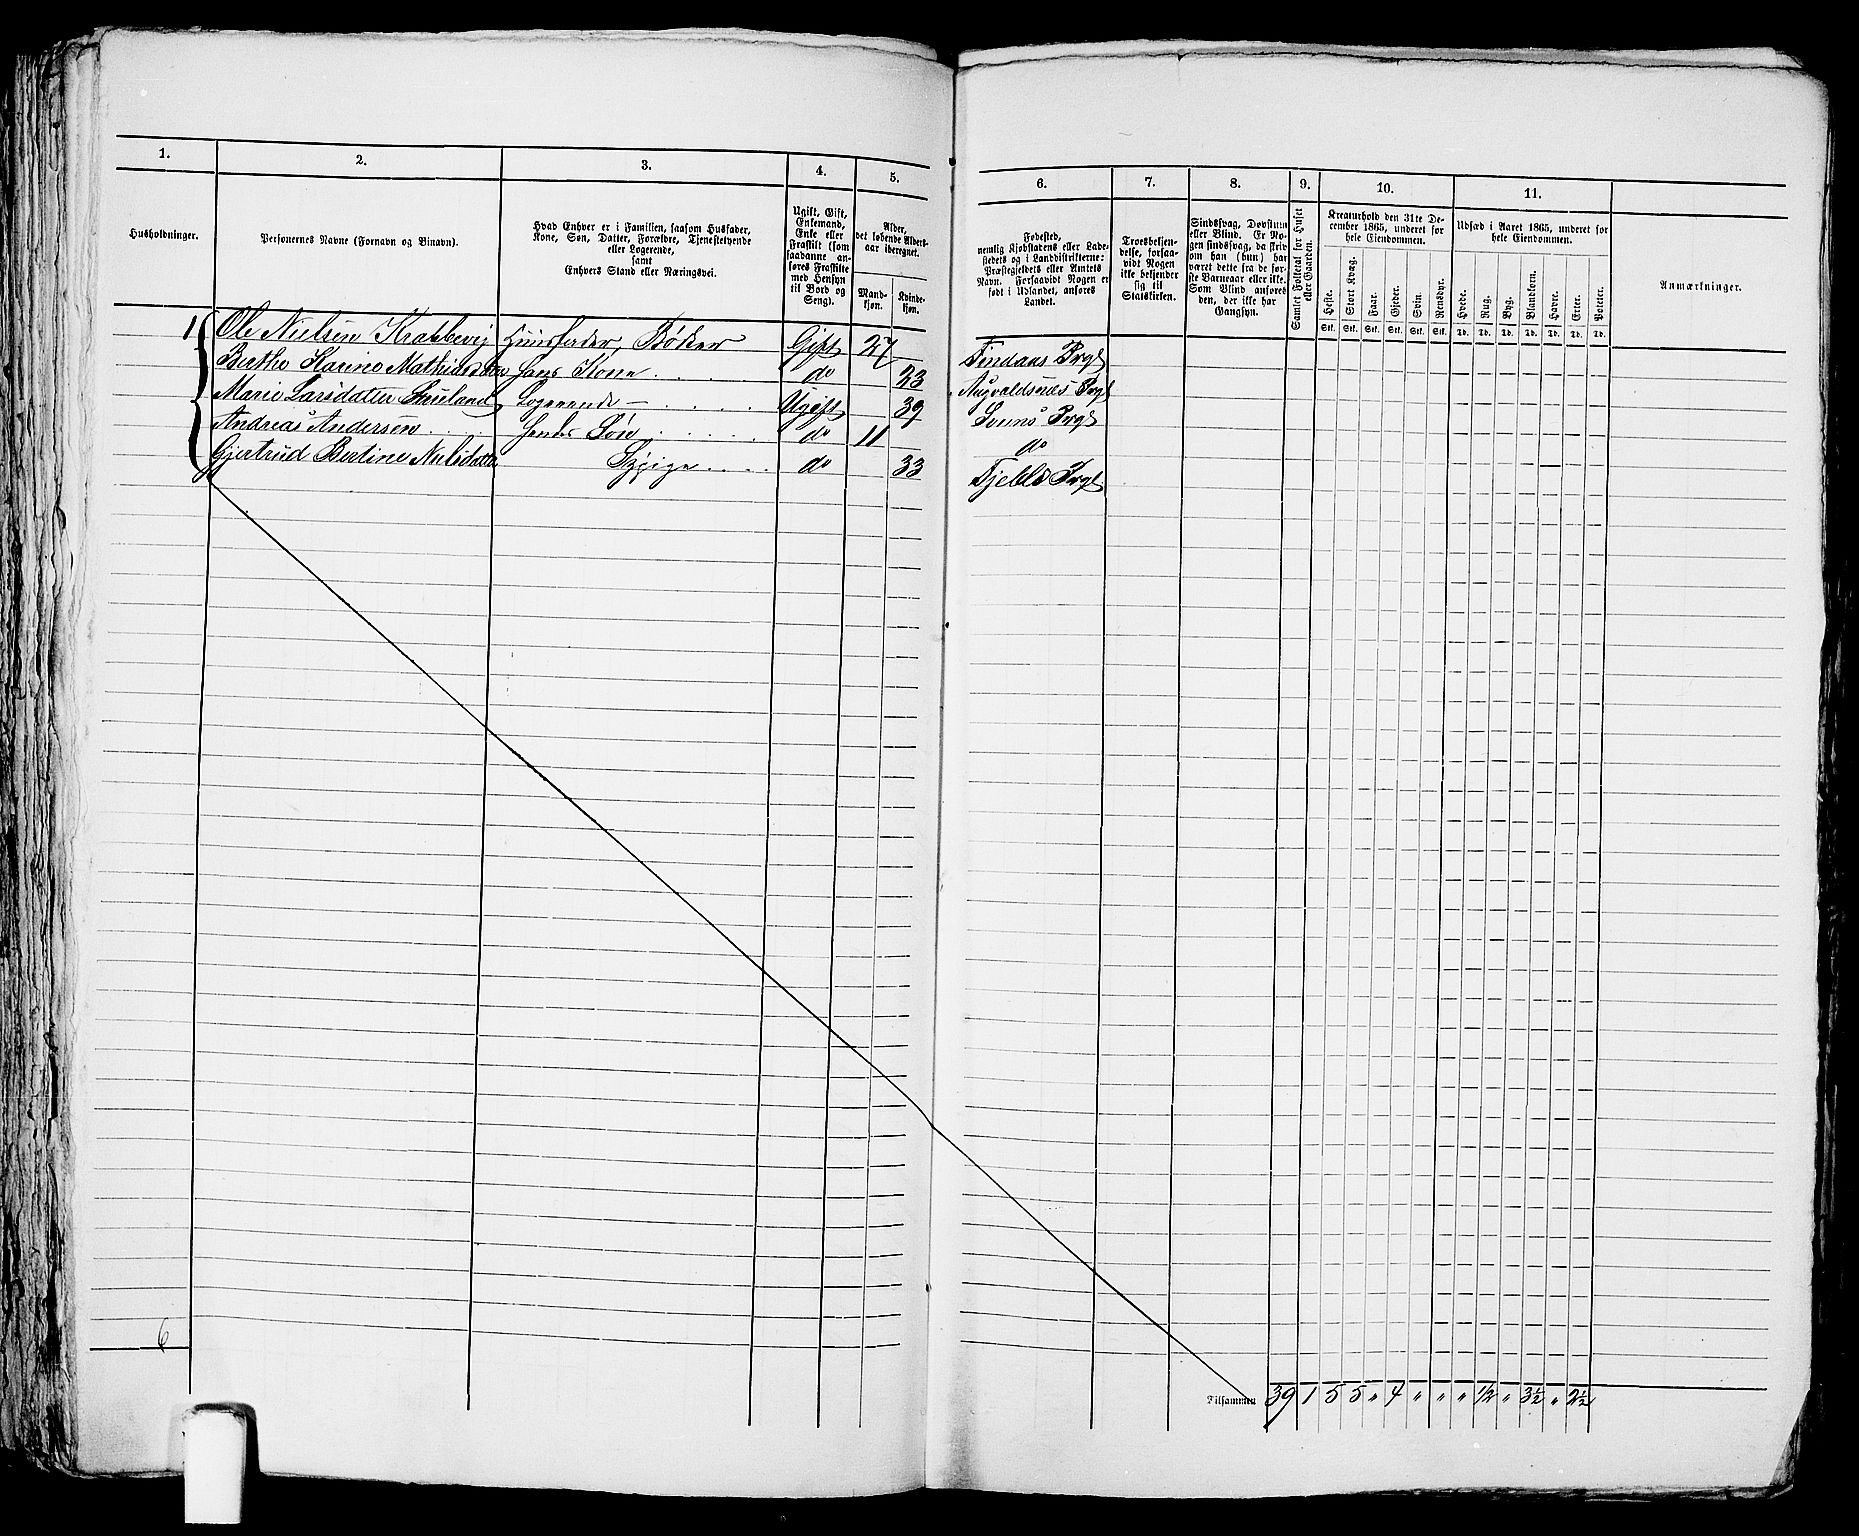 1.
2.
3.
4.
5.
Husholdninger.
Personernes Navne (Fornavn og Binavn).
Hvad Enhver er i Familien, saasom Husfader,
Kone, Søn, Datter, Forældre, Tjenestetyende
eller Logerende,
samt
Enhvers Stand eller Næringsvei.
Ugift, Gift,
Enkemand,
Enke eller
Fraskilt (som
saadanne an-
føres Fraskilte
med Hensyn
til Bord og
Seng).
Alder,
det løbende Alders-
aar iberegnet.
Mand-
kjøn.
Kvinde-
kjøn.
1 Ole Nielsen Krabbevig Huusfader, Bødker Gift 27
Berthe Karine Mathisdatter Hans Kone do 23
Marie Larsdatter Logerende Ugift 39
Andreas Andersen Hendes Søn do 11
Gjertrud Bertine Nielsdatter Sypige do 33
6
6.
7.
8.
9.
10.
11.
Fødested,
nemlig Kjøbstadens eller Lade-
stedets og i Landdistrikterne:
Præstegjeldets eller Amtets
Navn. Forsaavidt Nogen er
født i Udlandet, anføres
Landet.
Troesbekjen-
delse, forsaa-
vidt Nogen
ikke bekjender
sig til
Statskirken.
Sindssvag, Døvstum
eller Blind. Er No-
gen sindssvag, da skriv
om han (hun) har
været dette fra de før-
ste Barneaar eller ikke.
Som Blind anføres
den, der ikke har
Gangsyn.
Samlet Folketal for Huset
eller Gaarden.
Kreaturhold den 31te De-
cember 1865, underet for
hele Eiendommen.
Heste.
Stort Kvæg.
Faar.
Gjeder.
Svin.
Rensdyr.
Stk. Stk. Stk. Stk. Stk. Stk.
Udsæd i Aaret 1865, underet for
hele Eiendommen.
Hvede.
Rug.
Byg.
Blandkorn.
Havre.
Erter.
Poteter.
Td. Td. Td. Td. Td. Td. Td.
Anmærkninger.
Findaas Prgl
Augvaldsnæs Prgl
Prgl
do
Fjelds Prgl
Tilsammen 39 1 5 5 " 4 " " " 1/2 " 3 1/2 " 2 1/2